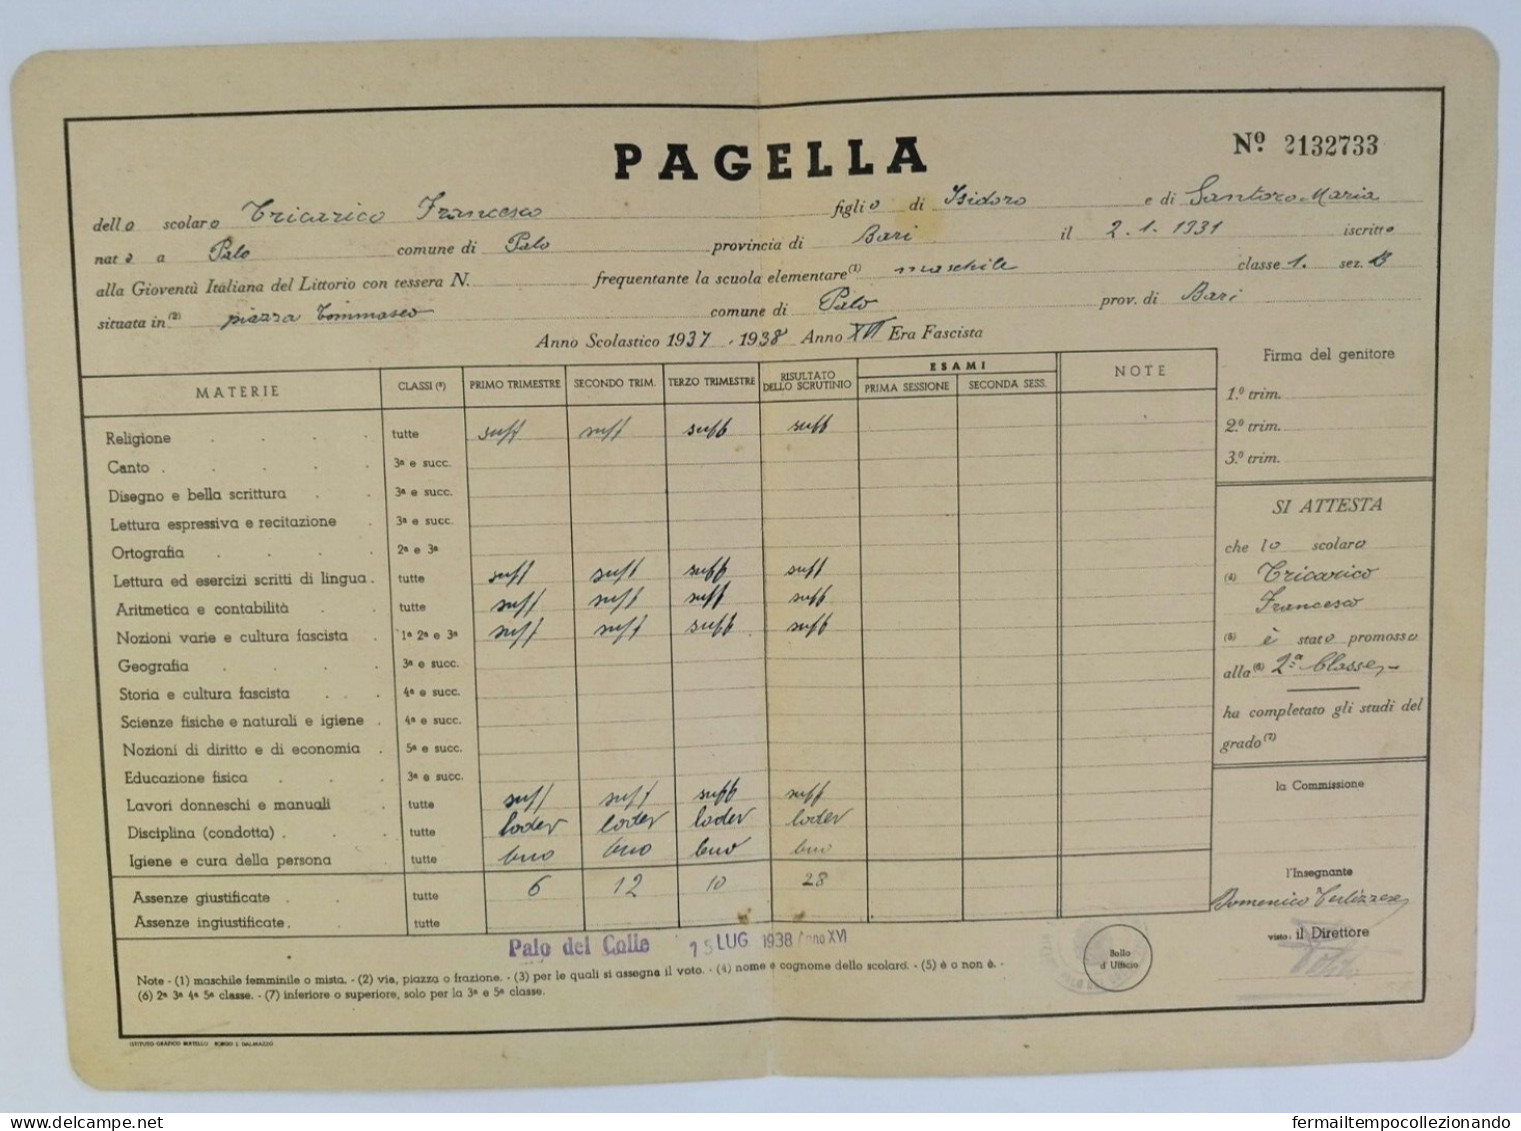 PAGELLA
Nº 2132733
dello scolaro Tricarico Francesco figlio di Isidoro e di Santoro Maria
nato a Palo comune di Palo provincia di Bari il 2.1.1931 iscritto
alla Gioventù Italiana del Littorio con tessera N. frequentante la scuola elementare (1) maschile classe 1. sez. B
situata in (2) piazza Tommaseo comune di Palo prov. di Bari
Anno Scolastico 1937 . 1938 Anno XVI Era Fascista
MATERIE CLASSI (3) PRIMO TRIMESTRE SECONDO TRIM. TERZO TRIMESTRE RISULTATO DELLO SCRUTINIO ESAMI PRIMA SESSIONE SECONDA SESS. NOTE
Religione . . . . tutte suff suff suff suff
Canto . . . . 3ª e succ.
Disegno e bella scrittura . . 3ª e succ.
Lettura espressiva e recitazione . 3ª e succ.
Ortografia . . . . 2ª e 3ª
Lettura ed esercizi scritti di lingua . tutte suff suff suff suff
Aritmetica e contabilità . . tutte suff suff suff suff
Nozioni varie e cultura fascista . 1ª 2ª e 3ª suff suff suff suff
Geografia . . . . 3ª e succ.
Storia e cultura fascista . . 4ª e succ.
Scienze fisiche e naturali e igiene . 4ª e succ.
Nozioni di diritto e di economia . 5ª e succ.
Educazione fisica . . . 3ª e succ.
Lavori donneschi e manuali . tutte suff suff suff suff
Disciplina (condotta) . . . tutte lodev lodev lodev lodev
Igiene e cura della persona . tutte buo buo buo buo
Assenze giustificate . . tutte 6 12 10 28
Assenze ingiustificate . . tutte
Firma del genitore
1.º trim.
2.º trim.
3.º trim.
SI ATTESTA
che lo scolaro
(4) Tricarico
Francesco
(5) è stato promosso
alla (6) 2ª Classe
ha completato gli studi del
grado (7)
la Commissione
l'Insegnante
Domenico Terlizzese
visto: il Direttore
Palo del Colle 15 LUG 1938 Anno XVI
Bollo
d'Ufficio
Note - (1) maschile femminile o mista. - (2) via, piazza o frazione. - (3) per le quali si assegna il voto. - (4) nome e cognome dello scolaro. - (5) è o non è. -
(6) 2ª 3ª 4ª 5ª classe. - (7) inferiore o superiore, solo per la 3ª e 5ª classe.
ISTITUTO GRAFICO BERTELLO - BORGO S. DALMAZZO
fermailtempocollezionando